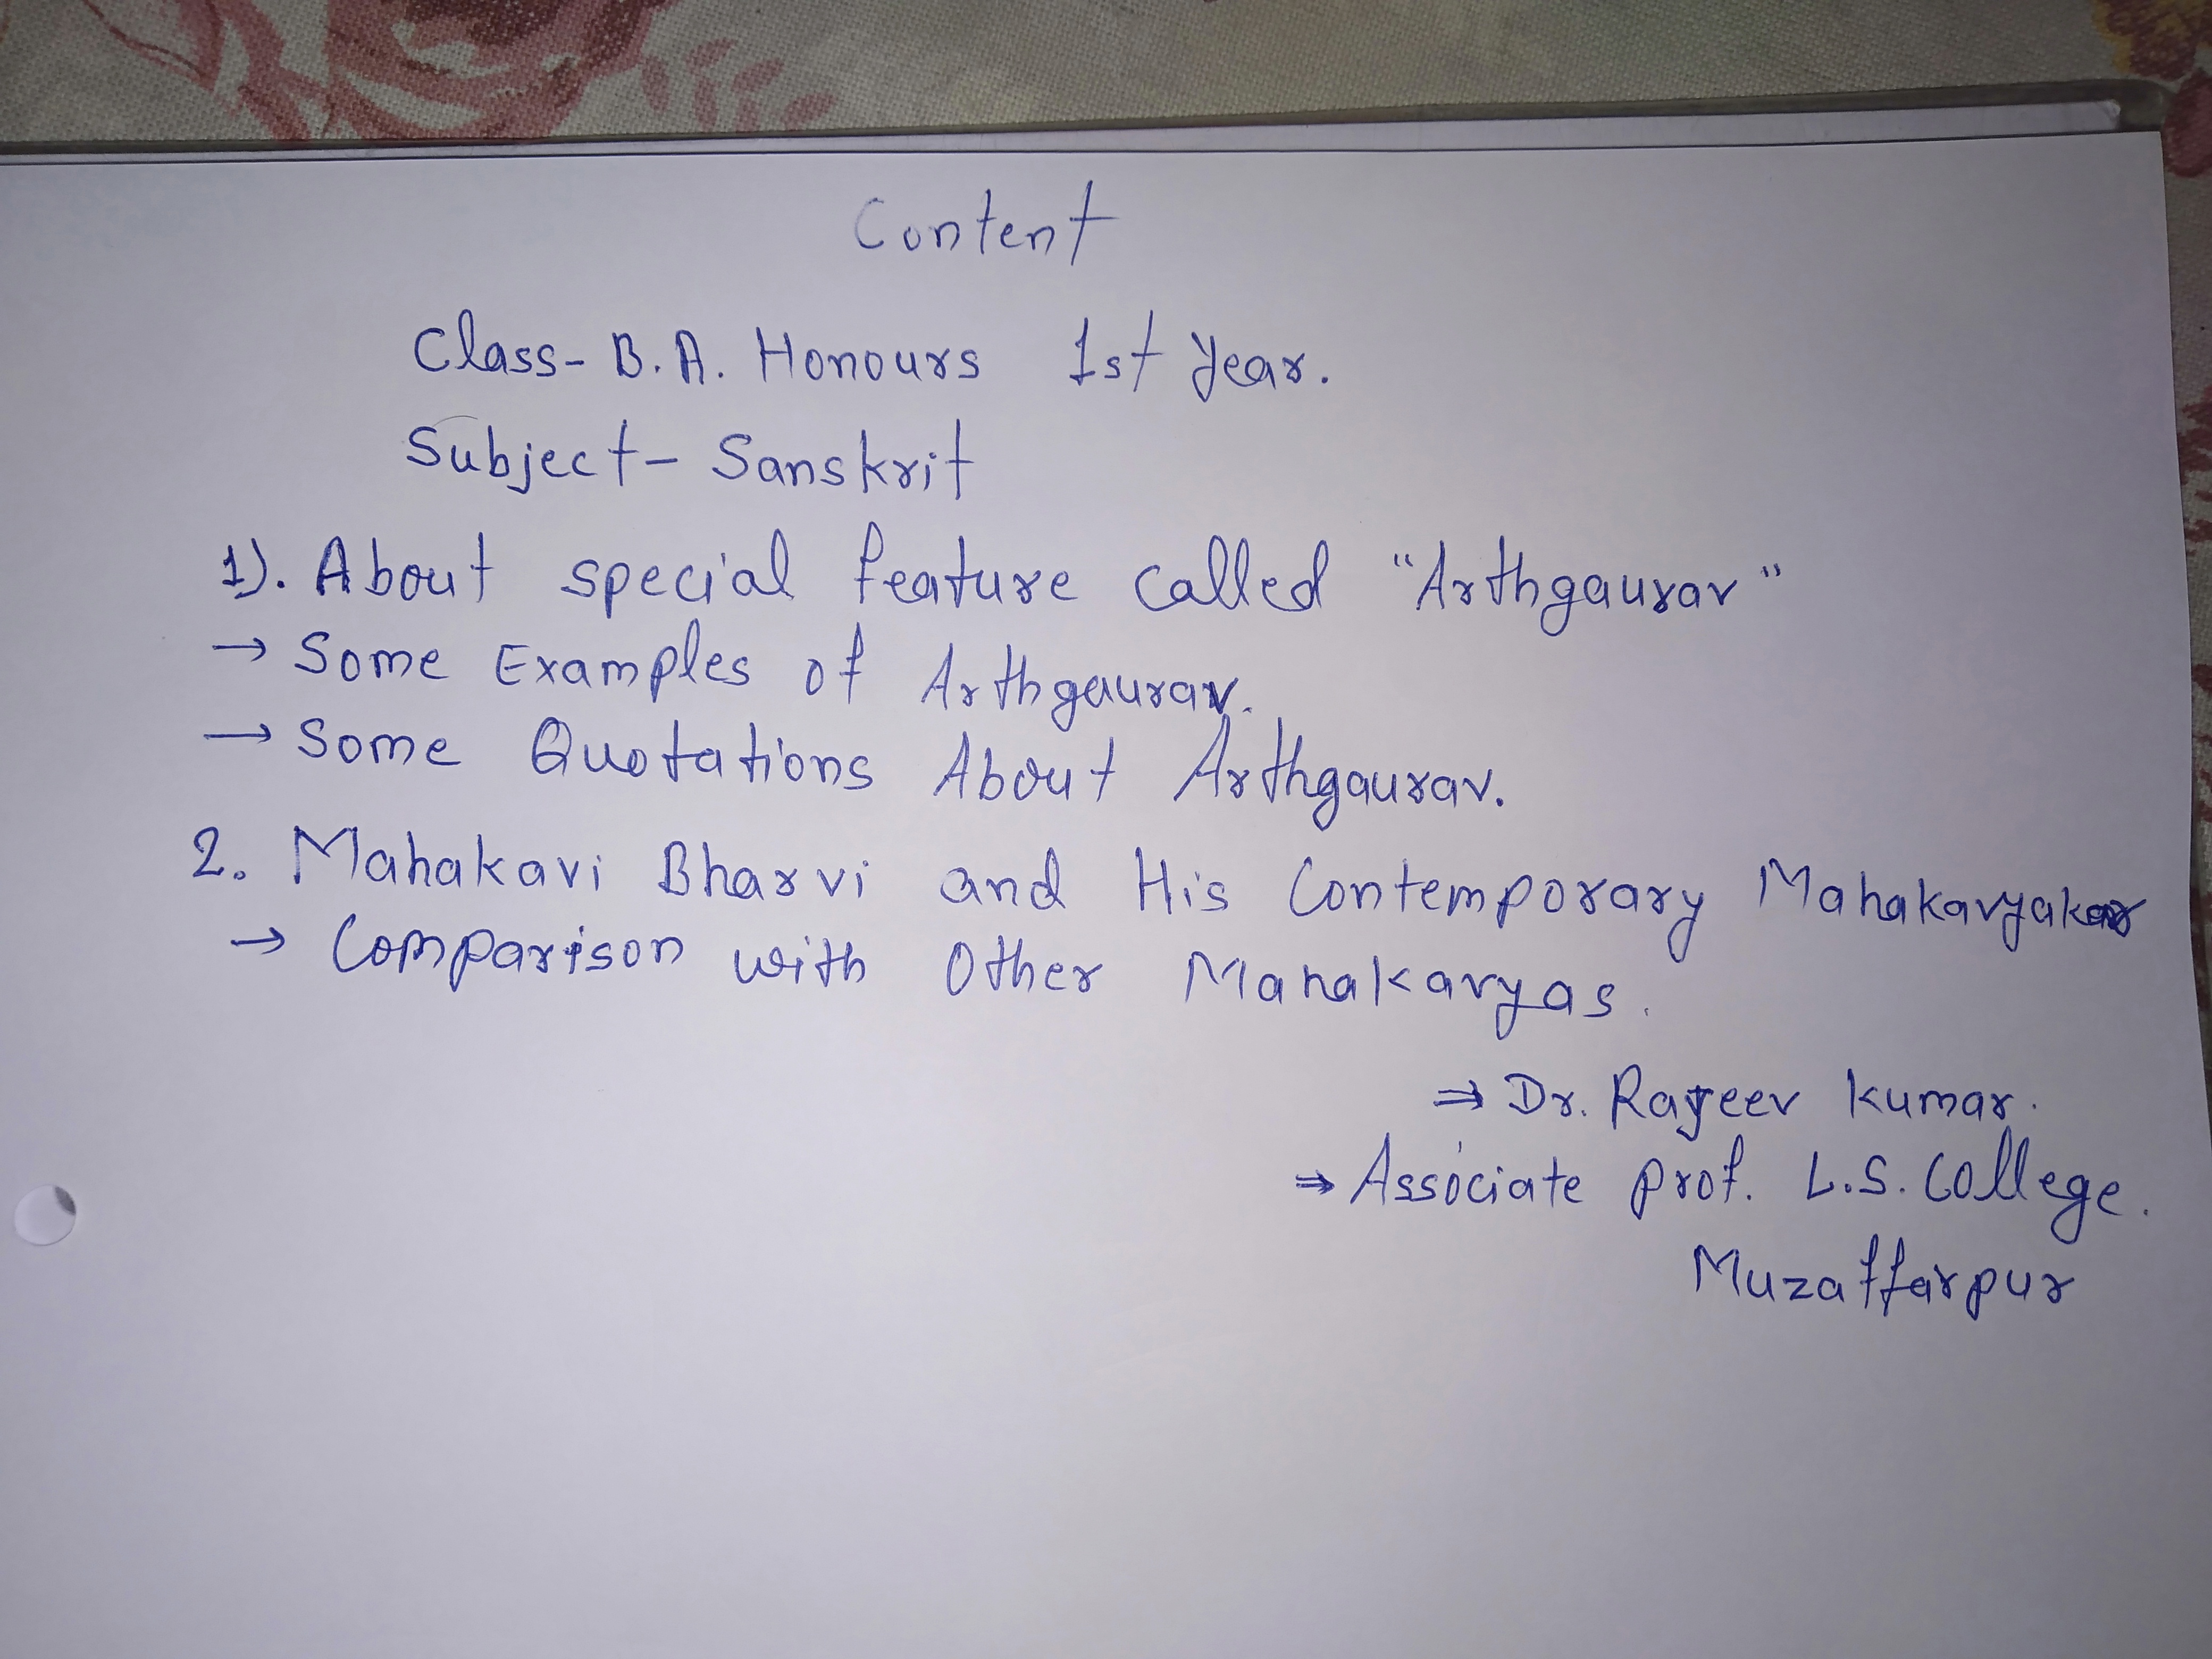 Content
Class- B.A. Honours 1st year.
Subject- Sanskrit
1). About special feature called "Arthgaurav"
→ Some Examples of Arthgaurav.
→ Some Quotations About Arthgaurav.
2. Mahakavi Bharvi and His Contemporary Mahakavyakar
→ Comparison with Other Mahakavyas.
⇒ Dr. Rajeev Kumar.
⇒ Associate prof. L.S. College.
Muzaffarpur